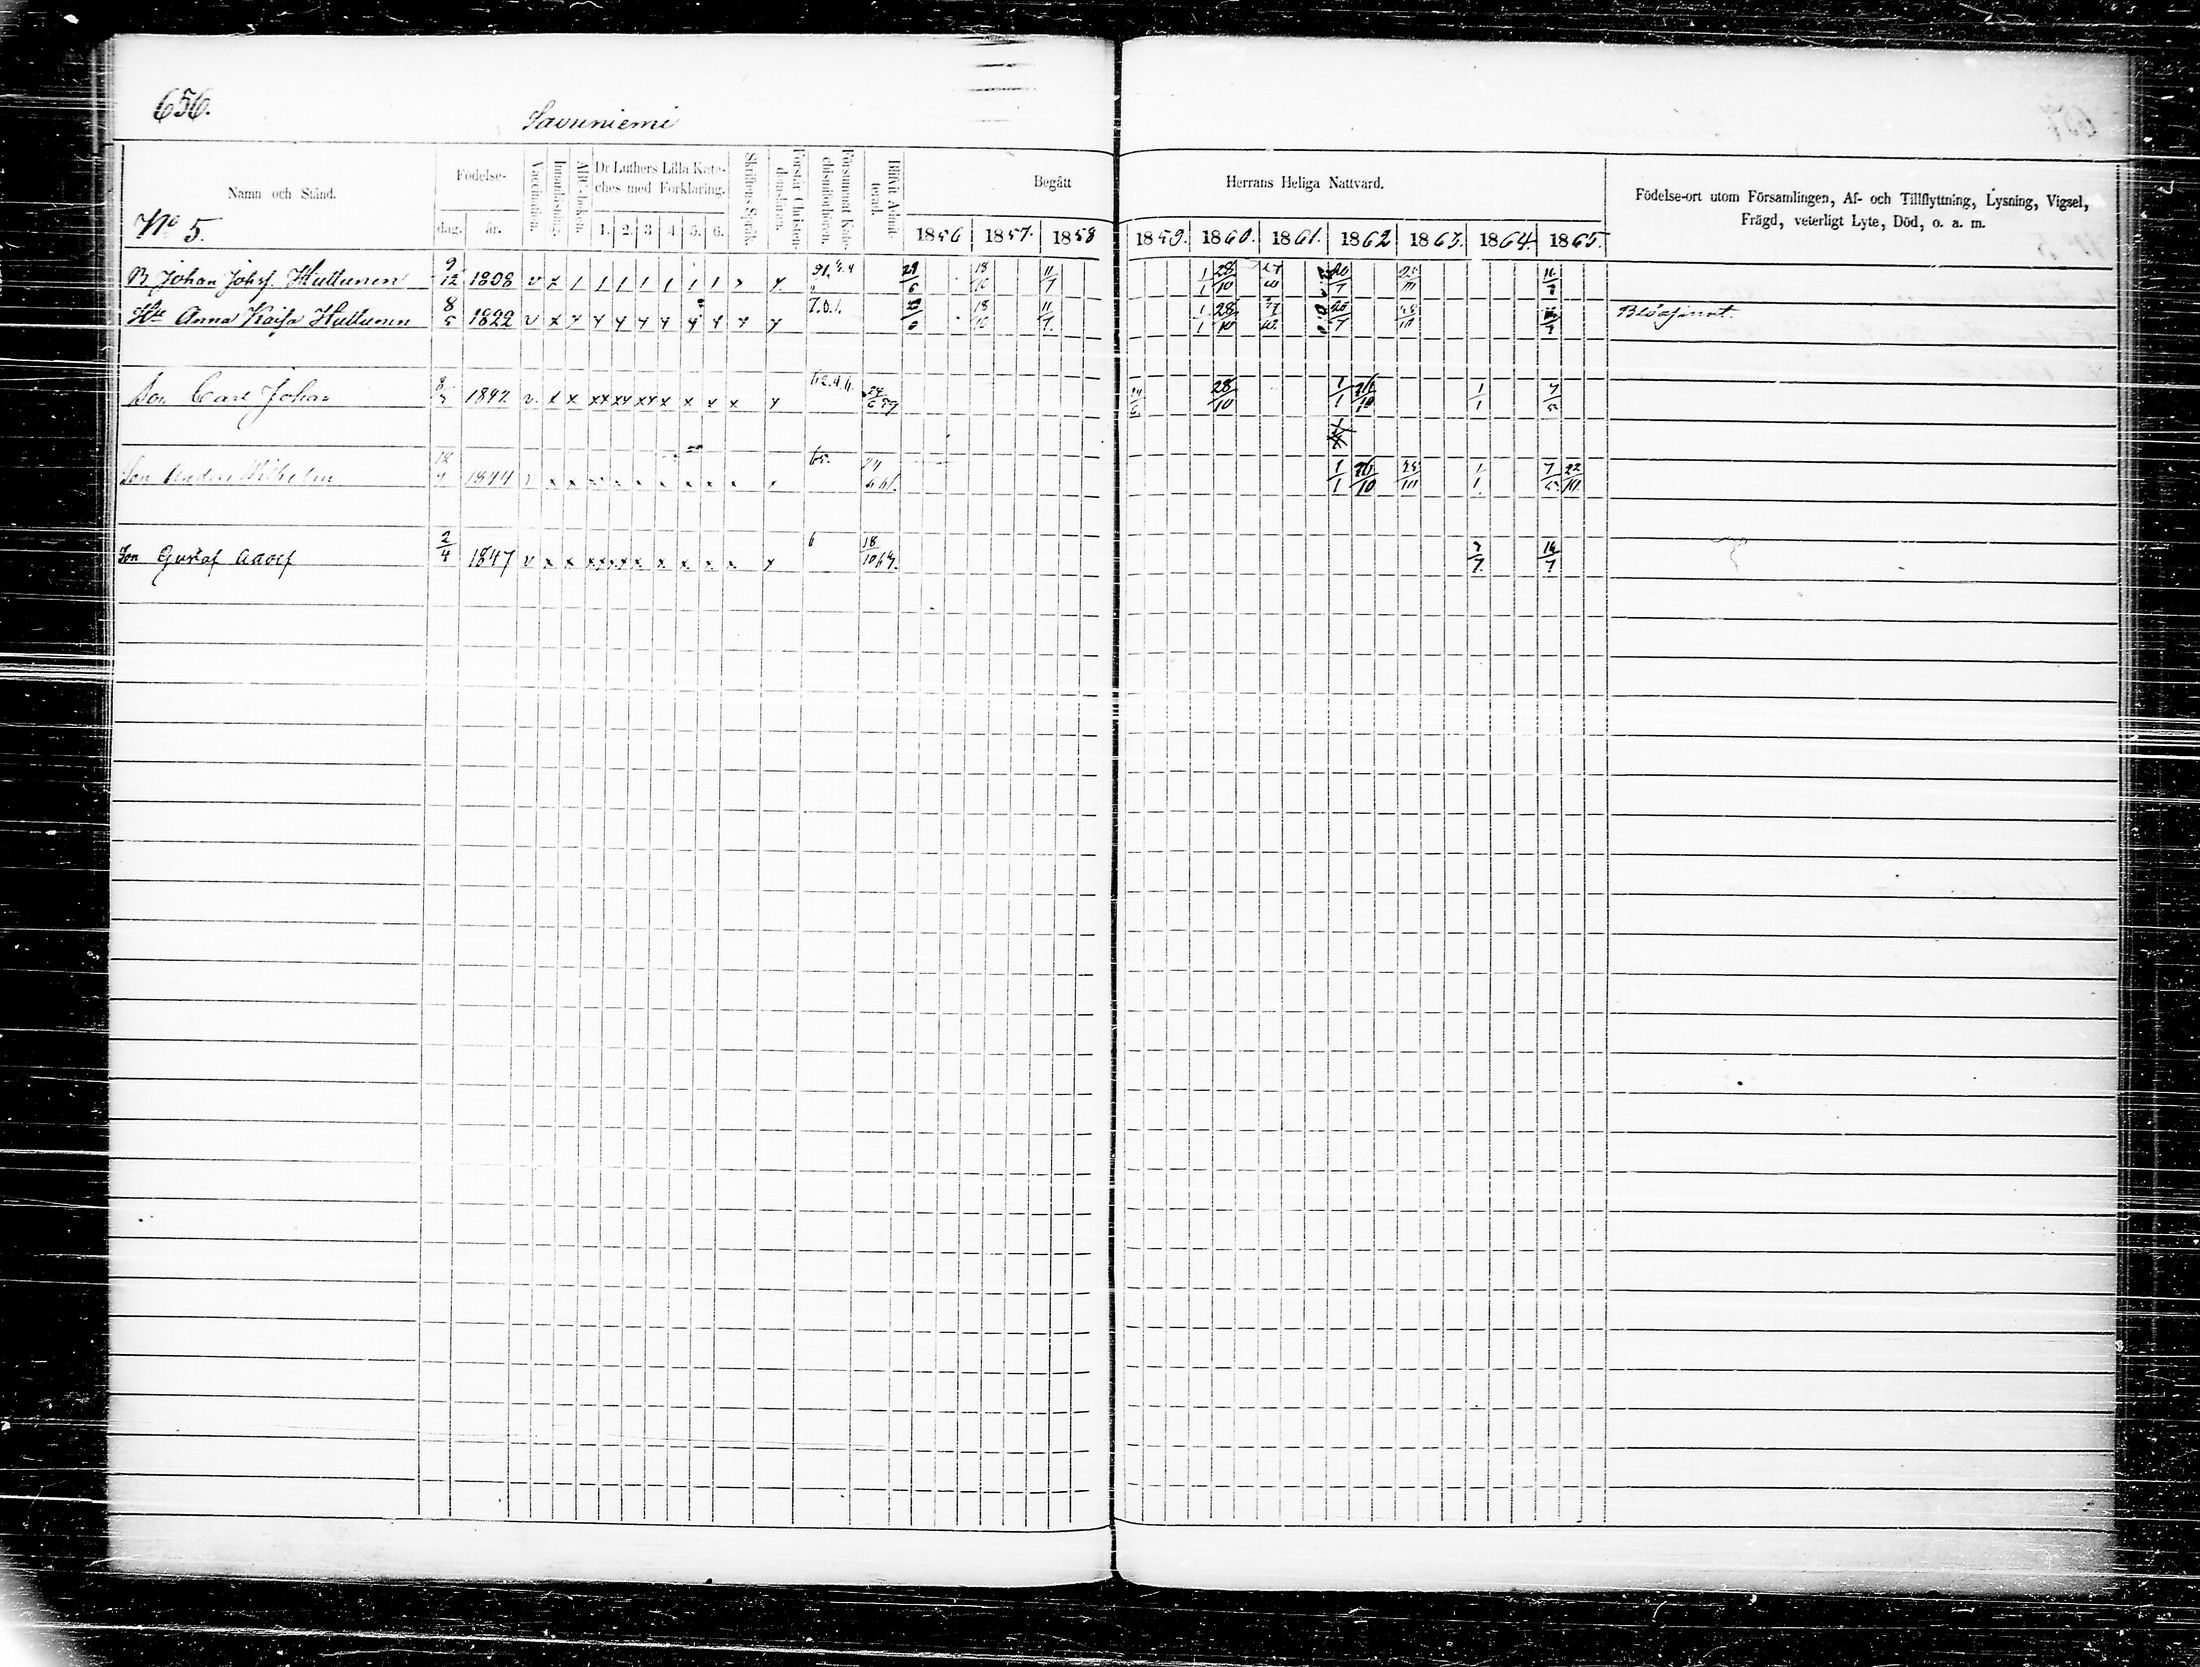 656.
Savuniemi
Namn och Stånd.
Födelse-
dag.
år.
Vaccinationen.
Innanläsning.
ABC-boken.
Dr Luthers Lilla Kate-
ches med Förklaring.
1. 2. 3 4. 5. 6.
Skriftens Språk.
Förstår Christen-
domsläran.
Försummat Kate-
chismiförhören.
Blifvit Admit-
terad.
Begått
Herrans Heliga Nattvard.
1856 1857. 1858 1859. 1860. 1861. 1862 1863. 1864. 1865.
Födelse-ort utom Församlingen, Af- och Tillflyttning, Lysning, Vigsel,
Frägd, veterligt Lyte, Död, o. a. m.
No 5.
B Johan Johsf. Huttunen 9/12 1808 v x 1 1 1 1 1 1 1 29/6 18/10 11/7 1/1 28/10 20/7 25/10 16/7
Hu Anna Kaisa Huttunen 8/5 1822 v x y y y y y y y y y 7.0.1. 29/6 18/10 11/7. 1/1 28/10 27/10. 20/7 25/10 16/7
Son Carl Johan 1842 v. x x xx xx xx x x x x y 62.4.6. 24/6 59 24/6 28/10 1/1 26/10 1/1 7/5
Son Anders Wilhelm 1844 x x x x x x x x 65. 24/6 61. 1/1 26/10 25/10 1/1. 7/5. 22/10.
Son Gustaf Adolf 2/4 1847 v x x xx xx x. x x x. x. y 6 18/10 64. 7/7. 16/7